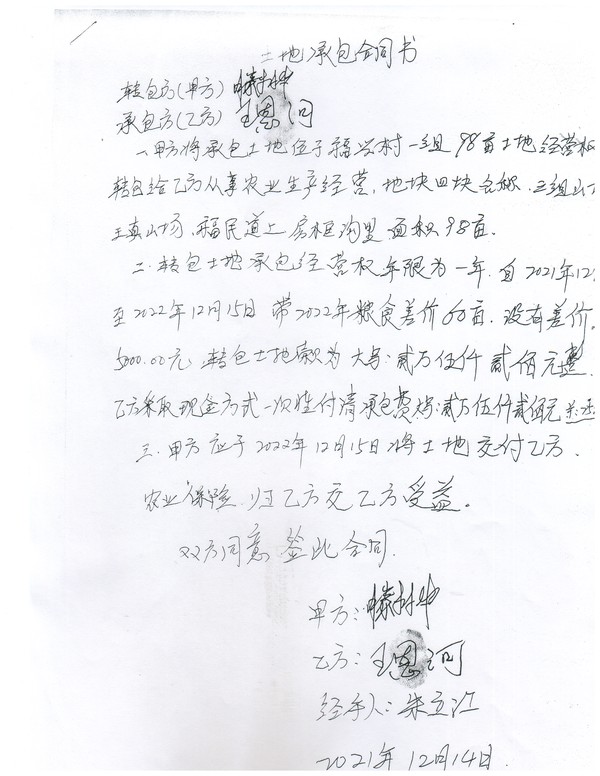 土地承包合同书
转包方(甲方)
承包方(乙方) 王恩河
一、甲方将承包土地位于福兴村一组98亩土地经营权
转包给乙方从事农业生产经营,地块四块,三组山
王真山场,福民道上房框沟里 面积98亩。
二、转包土地承包经营权年限为一年,自2021年12
至2022年12月15日 带2022年粮食差价60亩.没有差价
5000.00元,转包土地款为大写:贰万伍仟贰佰元整
乙方采取现金方式一次性付清承包费:贰万伍仟贰佰元
三.甲方应于2022年12月15日将土地交付乙方.
农业保险归乙方交乙方受益。
双方同意签此合同.
甲方:
乙方:王恩河
经手人:朱立江
2021年12月14日.